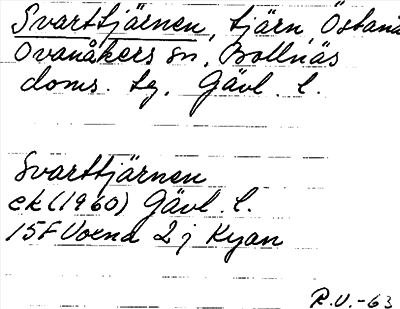 Svarttjärnen, tjärn, Östanå
Ovanåkers sn, Bollnäs
doms. tg, Gävl. l.
Svarttjärnen
ek (1960) Gävl. l.
15F Voxna 2 j Kyan
R.V.-63